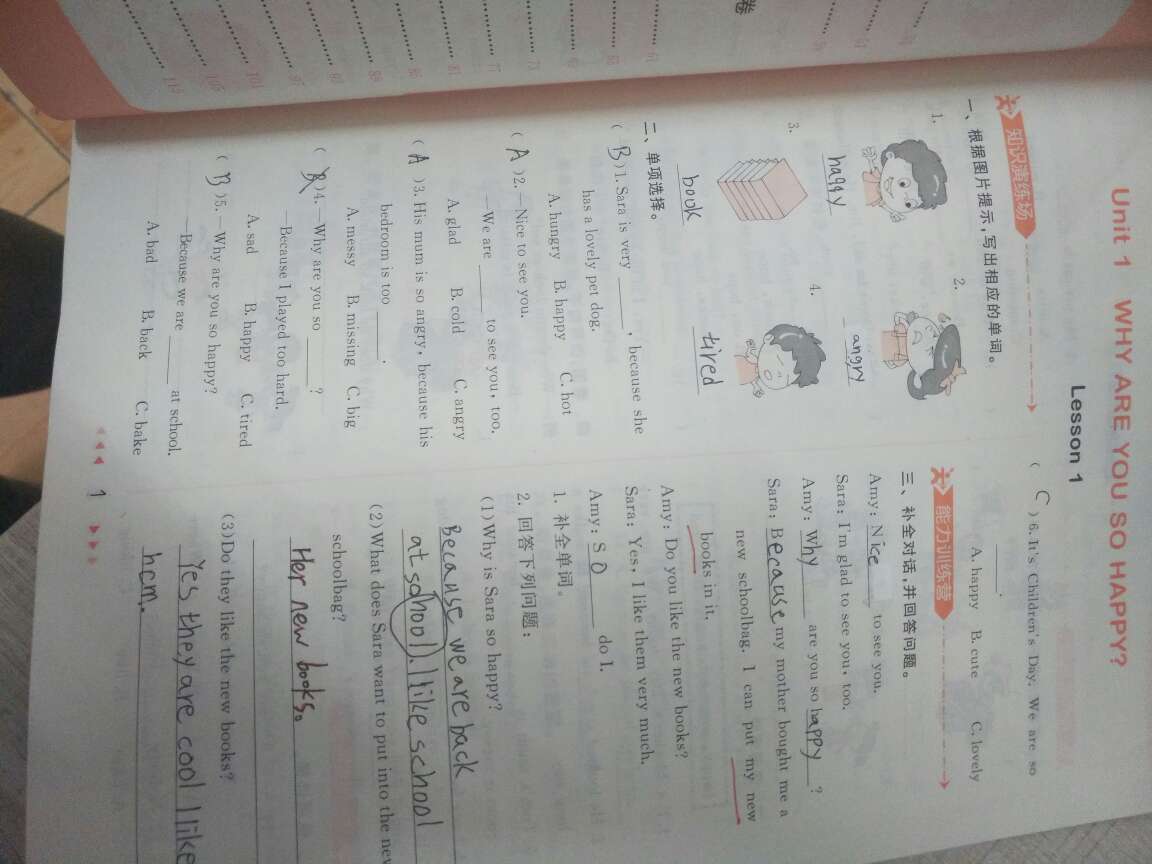 卷
61
101
119
Unit 1 WHY ARE YOU SO HAPPY?
Lesson 1
知识演练场
一、根据图片提示,写出相应的单词。
1.
2.
haggy
angry
3.
4.
book
tired
二、单项选择。
( B )1. Sara is very ______, because she
has a lovely pet dog.
A. hungry B. happy C. hot
( A )2. —Nice to see you.
—We are ______ to see you, too.
A. glad B. cold C. angry
( A )3. His mum is so angry, because his
bedroom is too ______.
A. messy B. missing C. big
( )4. —Why are you so ______?
—Because I played too hard.
A. sad B. happy C. tired
( B )5. —Why are you so happy?
—Because we are ______ at school.
A. bad B. back C. bake
( C )6. It's Children's Day. We are so
______.
A. happy B. cute C. lovely
能力训练营
三、补全对话,并回答问题。
Amy: Nice to see you.
Sara: I'm glad to see you, too.
Amy: Why are you so happy?
Sara: Because my mother bought me a
new schoolbag. I can put my new
books in it.
Amy: Do you like the new books?
Sara: Yes, I like them very much.
Amy: So do I.
1. 补全单词。
2. 回答下列问题:
(1) Why is Sara so happy?
Because we are back
at school. I like school
(2) What does Sara want to put into the new
schoolbag?
Her new books.
(3) Do they like the new books?
Yes they are cool I like
hem.
1